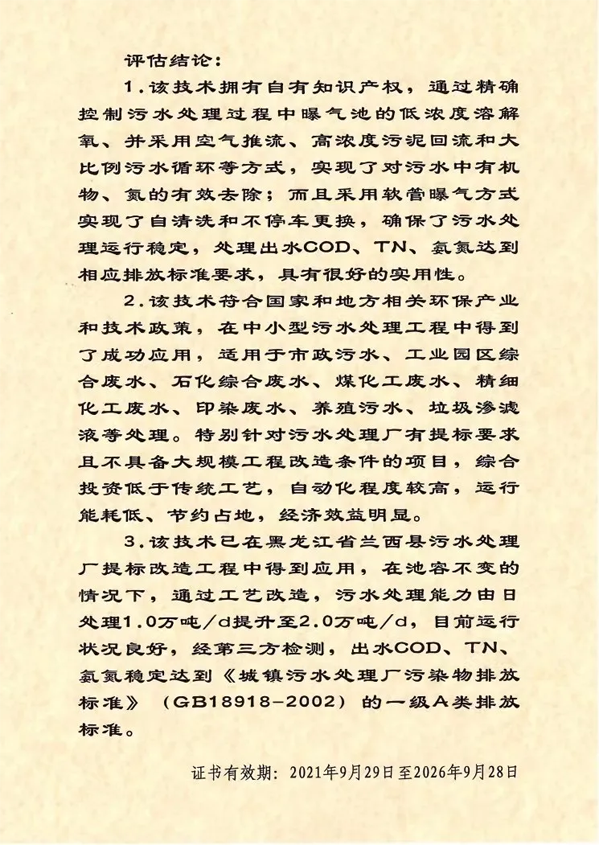 评估结论：
1.该技术拥有自有知识产权，通过精确
控制污水处理过程中曝气池的低浓度溶解
氧、并采用空气推流、高浓度污泥回流和大
比例污水循环等方式，实现了对污水中有机
物、氮的有效去除；而且采用软管曝气方式
实现了自清洗和不停车更换，确保了污水处
理运行稳定，处理出水COD、TN、氨氮达到
相应排放标准要求，具有很好的实用性。
2.该技术符合国家和地方相关环保产业
和技术政策，在中小型污水处理工程中得到
了成功应用，适用于市政污水、工业园区综
合废水、石化综合废水、煤化工废水、精细
化工废水、印染废水、养殖污水、垃圾渗滤
液等处理。特别针对污水处理厂有提标要求
且不具备大规模工程改造条件的项目，综合
投资低于传统工艺，自动化程度较高，运行
能耗低、节约占地，经济效益明显。
3.该技术已在黑龙江省兰西县污水处理
厂提标改造工程中得到应用，在池容不变的
情况下，通过工艺改造，污水处理能力由日
处理1.0万吨/d提升至2.0万吨/d，目前运行
状况良好，经第三方检测，出水COD、TN、
氨氮稳定达到《城镇污水处理厂污染物排放
标准》（GB18918-2002）的一级A类排放
标准。
证书有效期：2021年9月29日至2026年9月28日